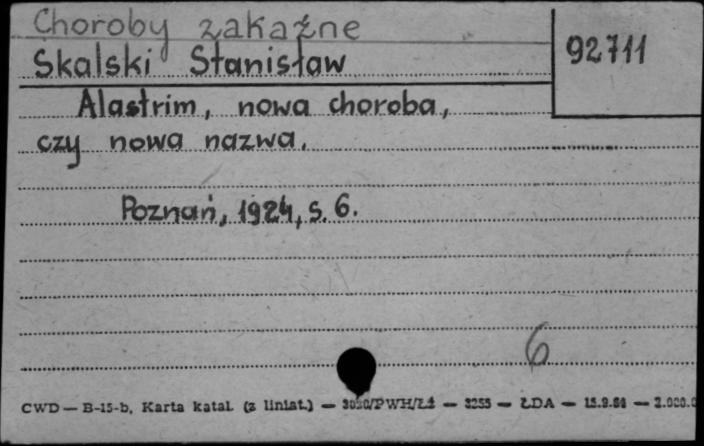 Choroby zakaźne
92711
Skalski Stanisław
Alastrim, nowa choroba,
czy nowa nazwa.
Poznań, 1924, s. 6.
6
CWD — B-15-b, Karta katal. (z liniat.) — /PWH/Łż — 3255 — ŁDA — 15.9.64 —